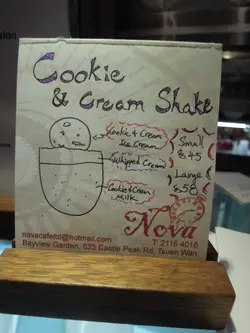 Cookie
& Cream Shake
Cookie & Cream
Ice Cream
Whipped Cream
Cookie & Cream
Milk
Small
$ 45
Large
$ 50
Nova
novacafeltd@hotmail.com
T 2116 4018
Bayview Garden, 633 Castle Peak Rd, Tsuen Wan